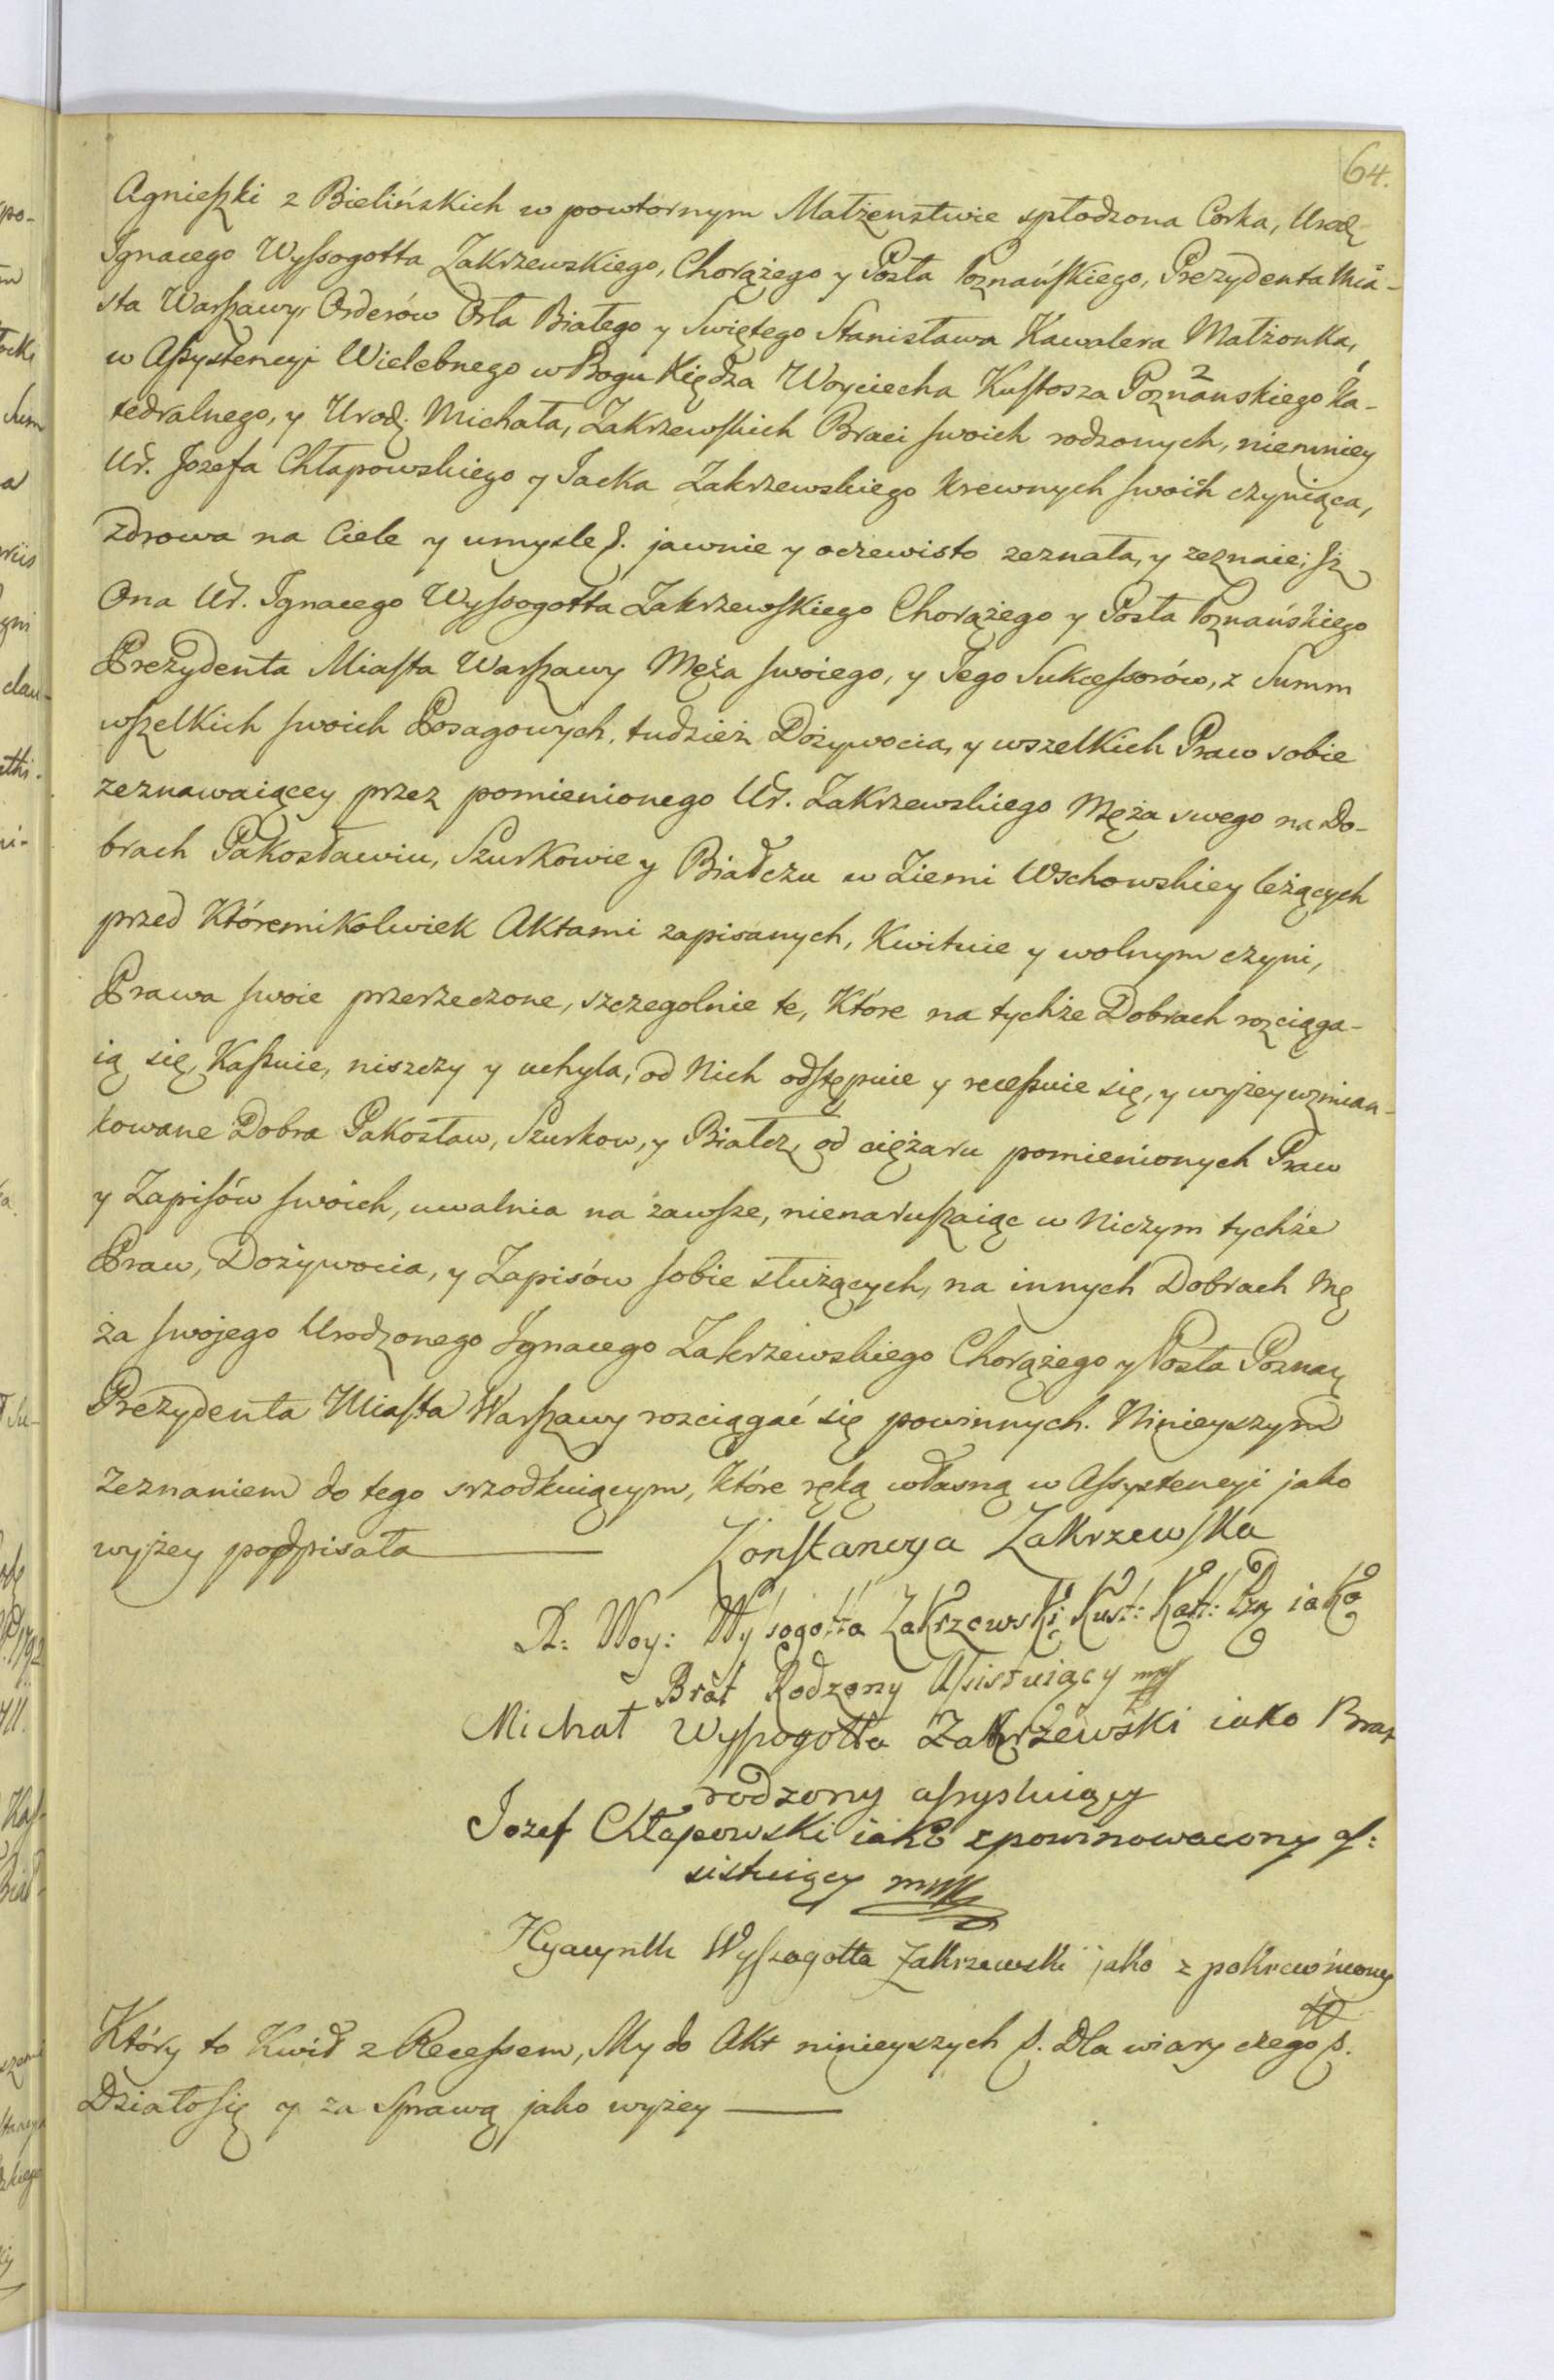 64.
Agnieszki z Bielińskich w powtornym Małżenstwie spłodzona Corka, Urodz
Ignacego Wyssogotta Zakrzewskiego, Chorążego y Posła Poznańskiego, Prezydenta Mia-
sta Warszawy, Orderów Orła Białego y Swiętego Stanisława Kawalera Małżonka,
w Assystencyi Wielebnego w Bogu Xiędza Woyciecha Kustosza Poznanskiego 2 Ka- 1
tedralnego, y Urodz. Michała, Zakrzewskich Braci swoich rodzonych, niemniey
Ur. Jozefa Chłapowskiego y Jacka Zakrzewskiego krewnych swoich czyniąca,
zdrowa na Ciele y umysle p. jawnie y oczewisto zeznała, y zeznaie; Jż
Ona Ur. Ignacego Wyssogotta Zakrzewskiego Chorążego y Posła Poznańskiego
Prezydenta Miasta Warszawy Męża swoiego, y Jego Sukcessorów, z Summ
wszelkich swoich Posagowych, tudzież Dożywocia, y wszelkich Praw sobie
zeznawaiącey przez pomienionego Ur. Zakrzewskiego Męża swego na Do-
brach Pakosławiu, Szurkowie y Białczu w Ziemi Wschowskiey leżących
przed Któremikolwiek Aktami zapisanych, Kwituie y wolnym czyni,
Prawa swoie przerzeczone, szczegolnie te, Które na tychże Dobrach rozciąga-
ią się, Kassuie, niszczy y uchyla, od Nich odstępuie y recessuie się, y wyżey wzmian-
kowane Dobra Pakosław, Szurkow, y Białcz, od ciężaru pomienionych Praw
y Zapisów swoich, uwalnia na zawsze, nienaruszaiąc w Niczym tychże
Praw, Dożywocia, y Zapisów sobie służących, na innych Dobrach Mę
ża swojego Urodzonego Ignacego Zakrzewskiego Chorążego y Posła Poznań
Prezydenta Miasta Warszawy rozciągać się powinnych. Ninieyszym
Zeznaniem do tego srzodkuiącym, Które ręką własną w Assystencyi jako
wyżey podpisała Konstancya Zakrzewska
X: Woy: Wysogotta Zakrzewski Kust: Kat: Pzn iako
Brat Rodzony Assistuiący mpp
Michał Wyssogotta Zakrzewski iako Brat
rodzony assystuiący
Jozef Chłapowski iako zpowinowacony as:
sistuiący mpp
Hyacynth Wyssogotta Zakrzewski jako z pokrewniony
Który to Kwit z Recessem, My do Akt ninieyszych p. Dla wiary czego p.
Działo się y za Sprawą jako wyżey